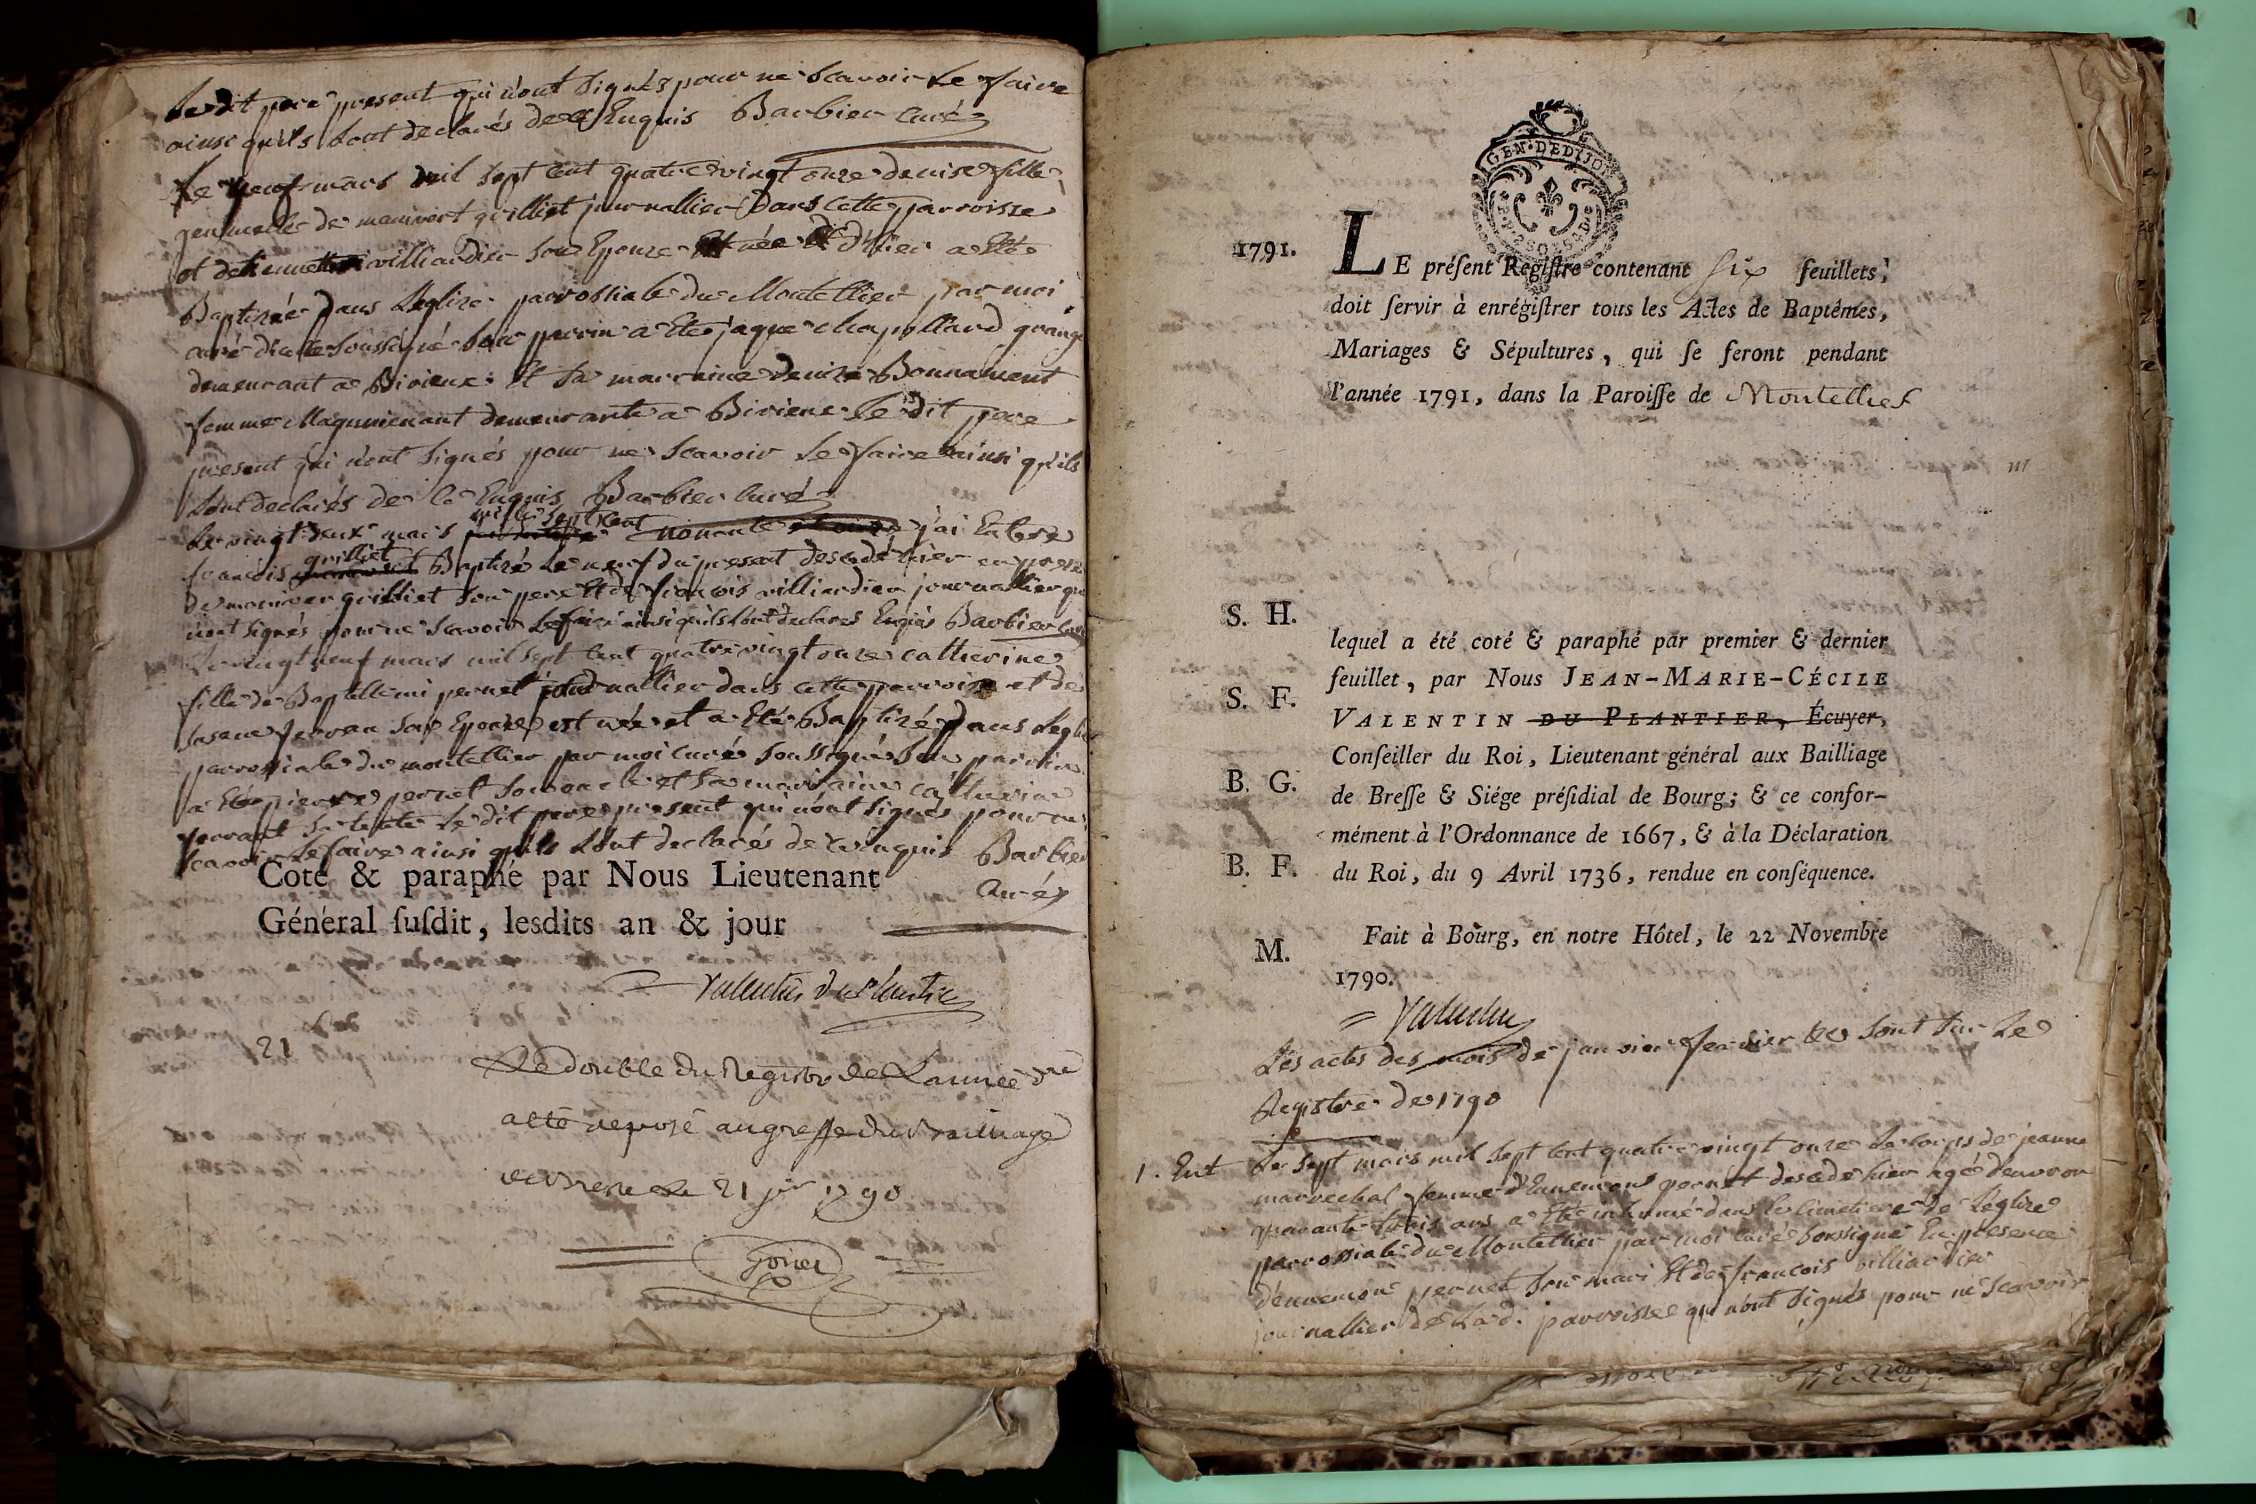 Le dit pere present qui n'ont signés pour ne scavoir le faire
ainsi qu'ils l'ont declarés de ce Enquis Barbier curé
Le neuf mars mil sept cent quatre vingt onze denise fille
gemmelle de grilliet journallier dans cette parroisse
villiardier son Epouse Est née d'hier a Eté
Baptisée dans L'eglise parrossiale du Montellier par moi
curé soussigné son parrin a Eté jaque chapellard grange
demeurant a Birieux Et sa marraine denise Bonnament
femme demeurante a Birieux le dit pere
present qui n'ont signés pour ne scavoir le faire ainsi qu'ils
l'ont declarés de ce Enquis Barbier curé
mille sept cent
Le vingt deux mars nonante j'ai Enterré
grilliet
francois Baptisé le neuf du present decedé hier en
de grilliet son pere Et de francois villiardier journallier qui
n'ont signés pour ne scavoir le faire ainsi qu'ils l'ont declarés Enquis Barbier curé
Le vingt neuf mars mil sept cent quatre vingt onze catherine
fille de pernet journallier dans cette parroisse et de
son Epouse est née et a Eté Baptisée dans L'eglise
parrossiale du montellier par moi curé soussigné son parrin
a Eté pierre pernet son oncle et sa marraine catherine
sa tante le dit pere present qui n'ont signés pour ne
scavoir le faire ainsi qu'ils l'ont declarés de ce enquis Barbier
curé
Coté & paraphé par Nous Lieutenant
Géneral ſuſdit, lesdits an & jour
Valentin du Plantier
21
Le double du Registre de L'année
a été deposé au greffe du Bailliage
de Bresse le 21 jer 1790
1791.
GEN. DE DIJON
LE préſent Regiſtre contenant six feuillets,
doit ſervir à enrégiſtrer tous les Actes de Baptêmes,
Mariages & Sépultures, qui ſe feront pendant
l'année 1791, dans la Paroiſſe de Montellier
S. H.
lequel a été coté & paraphé par premier & dernier
feuillet, par Nous JEAN-MARIE-CÉCILE
S. F.
VALENTIN DU PLANTIER, Écuyer,
Conſeiller du Roi, Lieutenant général aux Bailliage
B. G.
de Breſſe & Siége préſidial de Bourg; & ce confor-
mément à l'Ordonnance de 1667, & à la Déclaration
B. F.
du Roi, du 9 Avril 1736, rendue en conſéquence.
M.
Fait à Bourg, en notre Hôtel, le 22 Novembre
1790.
Valentin
Les actes des mois de janvier fevrier sont sur le
Registre de 1790
1. Ent
Le sept mars mil sept cent quatre vingt onze le corps de jeanne
marrechal femme d'Ennemont pernet decedé hier agé d'environ
quarante trois ans a Eté inhumé dans le cimetiere de L'eglise
parrossiale du Montellier par moi curé soussigné En presence
d'ennemont pernet son mari Et de francois villiardier
journallier de la d. parroisse qui n'ont signés pour ne scavoir